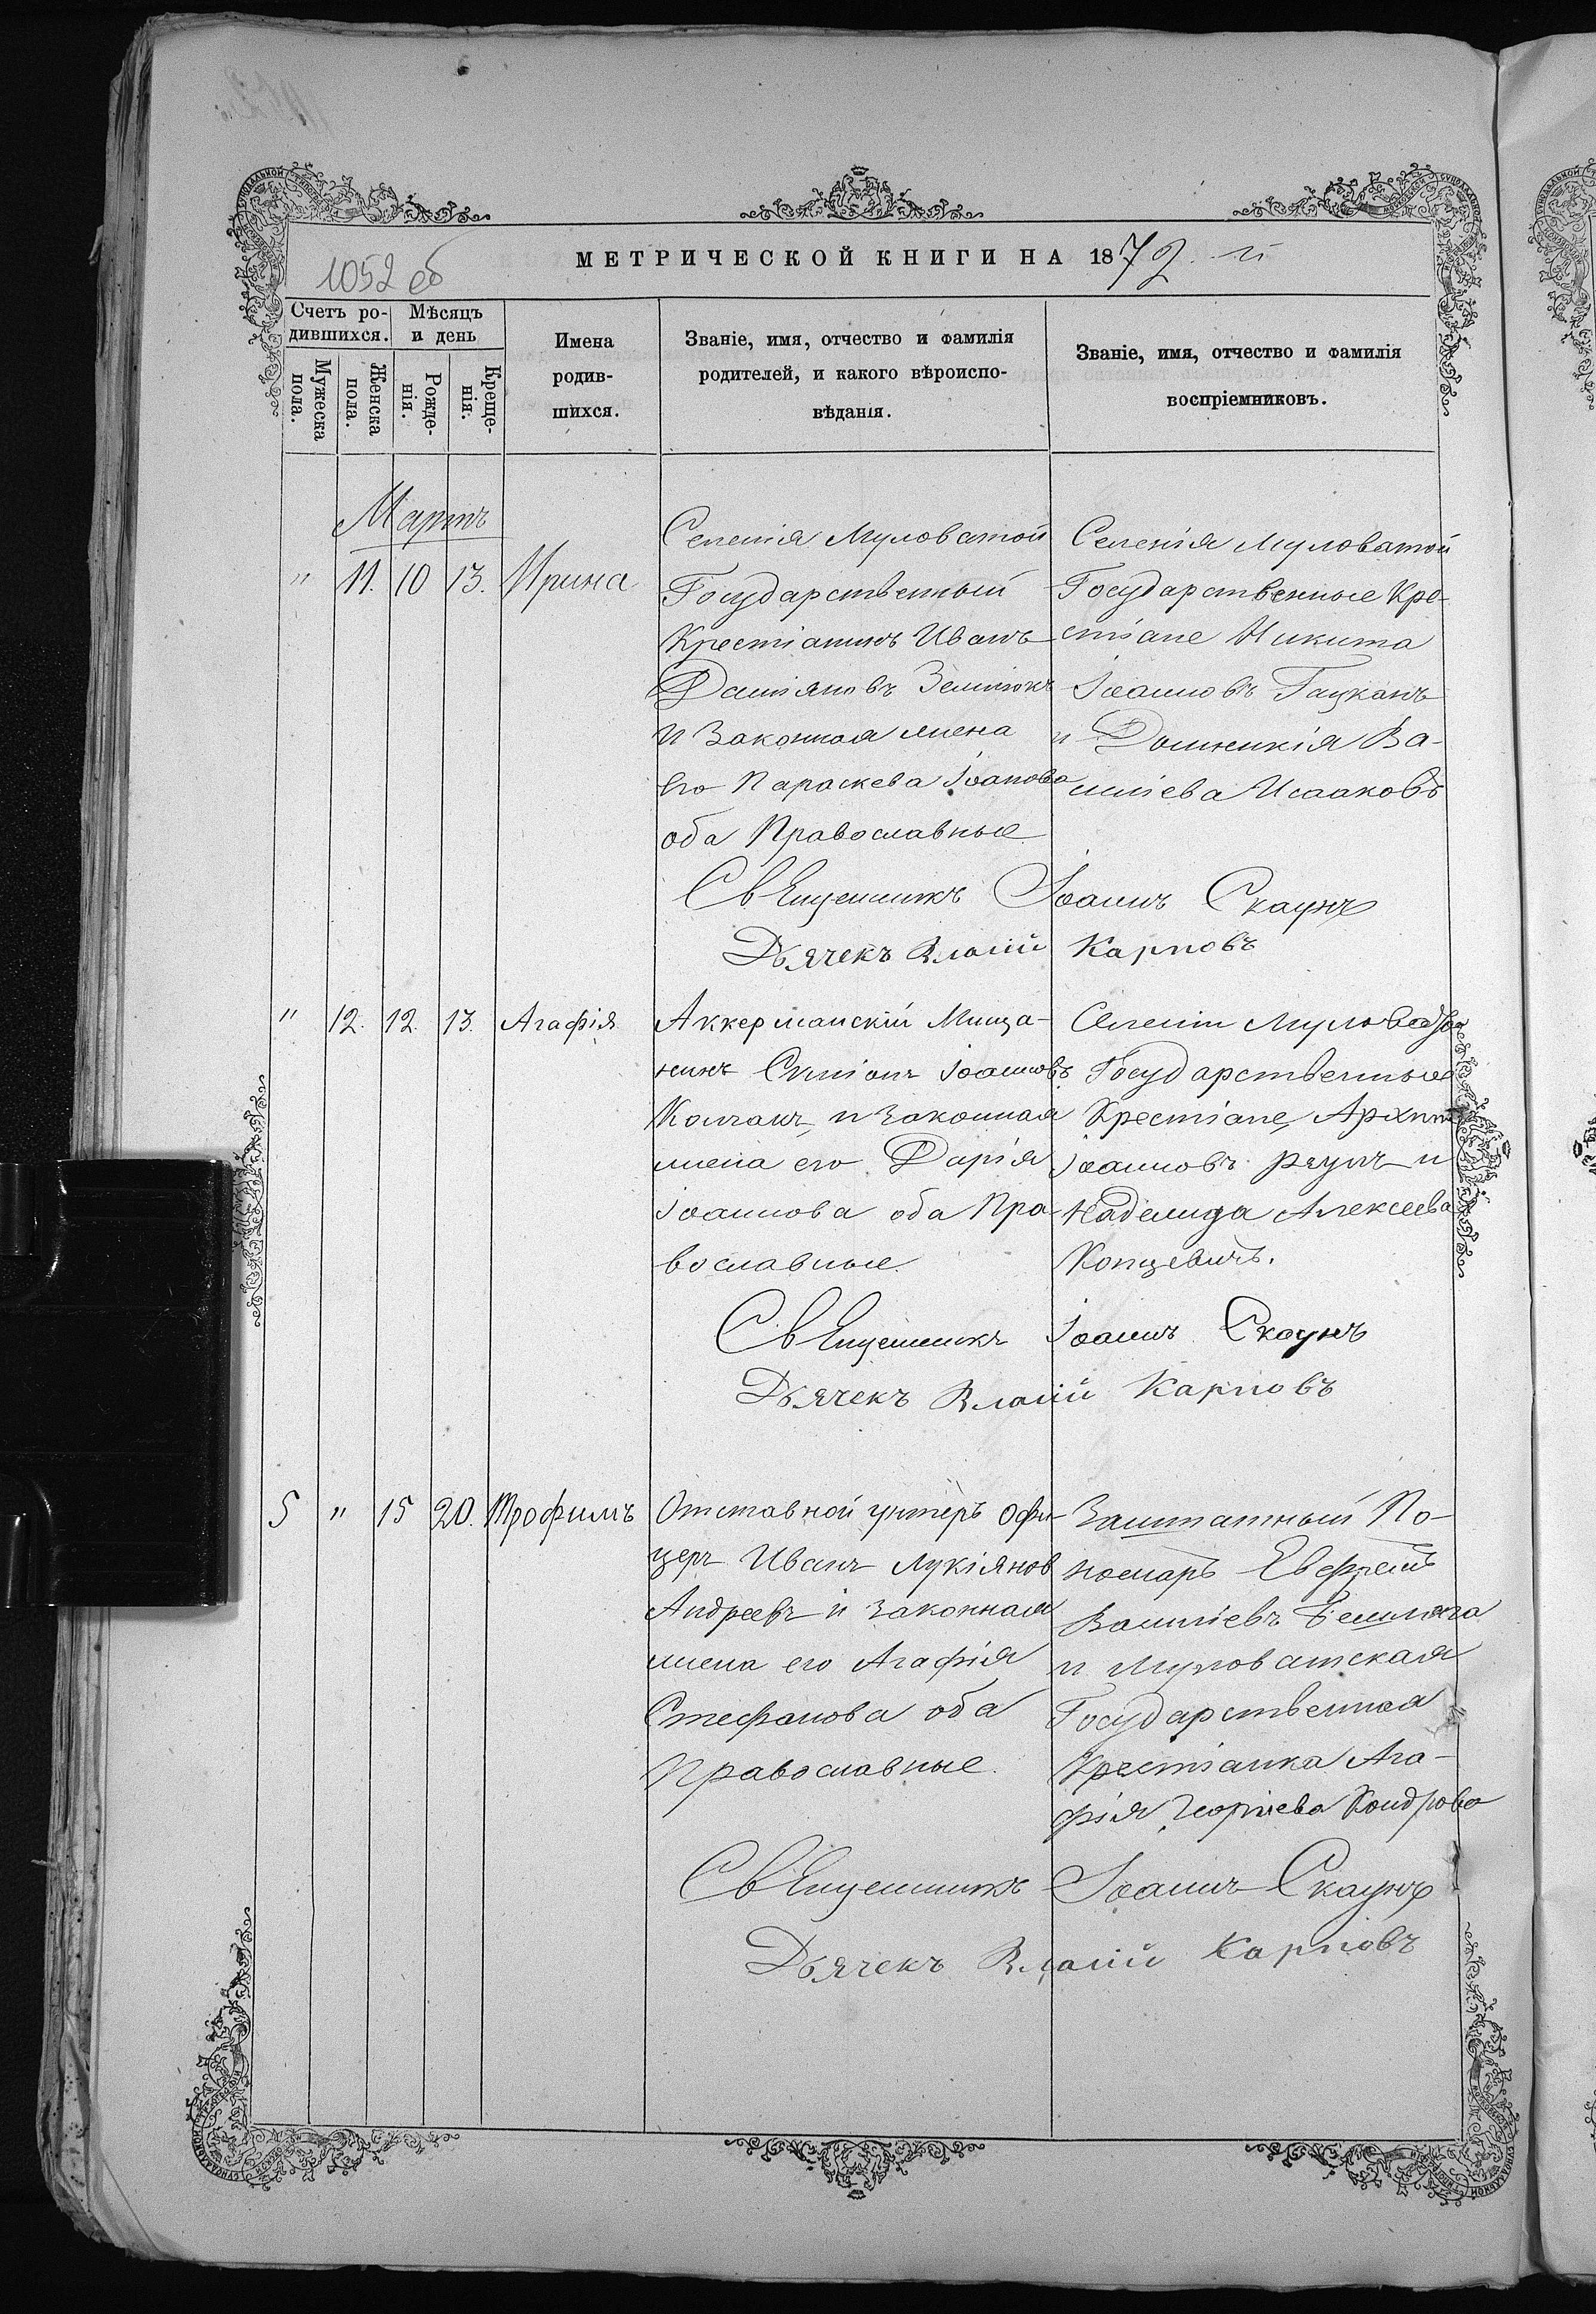 МЕТРИЧЕСКОЙ КНИГИ НА 1872 й
1052 об
Счетъ родившихся.
Мѣсяцъ и день
Мужеска пола.
Женска пола.
Рожденія.
Крещенія.
Имена
родив-
шихся.
Званіе, имя, отчество и фамилія
родителей, и какого вѣроиспо-
вѣданія.
Званіе, имя, отчество и фамилія
воспріемниковъ.
Мартъ
" 11. 10 13. Ирина
Селенія Муловатой
Государственный
Крестіанинъ Иванъ
и Законная жена
его Параскева Іоанова
оба Православные
Селенія Муловатой
Государственные Кре-
стіане Никита
Іоанновъ Гацканъ
и Домникія Ва-
силіева Исааковъ
СвЕщенникъ Іоаннъ Скаунъ
Дьячекъ Власій Карповъ
" 12. 12. 13. Агафія
Аккерманскій Мища-
нинъ Симіонъ Іоанновъ
Колчакъ, и Законная
жена его Дарія
Іоаннова оба Пра-
вославные
Селеніи
Государственные
Крестіане, Архипъ
Іоанновъ и
Надежда Алексеева
Концевичъ.
СвЕщенникъ Іоаннъ Скаунъ
Дьячекъ Власій Карповъ
5 " 15 20. Трофимъ
Отставной унтеръ Офи-
церъ Иванъ Лукіянов
Андреевъ и законная
жена его Агафія
Стефанова оба
Православные.
Заштатный По-
номарь
Василіевъ
и Муловатская
Государственная
Крестіанка Ага-
фія Георгіева Кондрова
СвЕщенникъ Іоаннъ Скаунъ
Дьячекъ Власій Карповъ